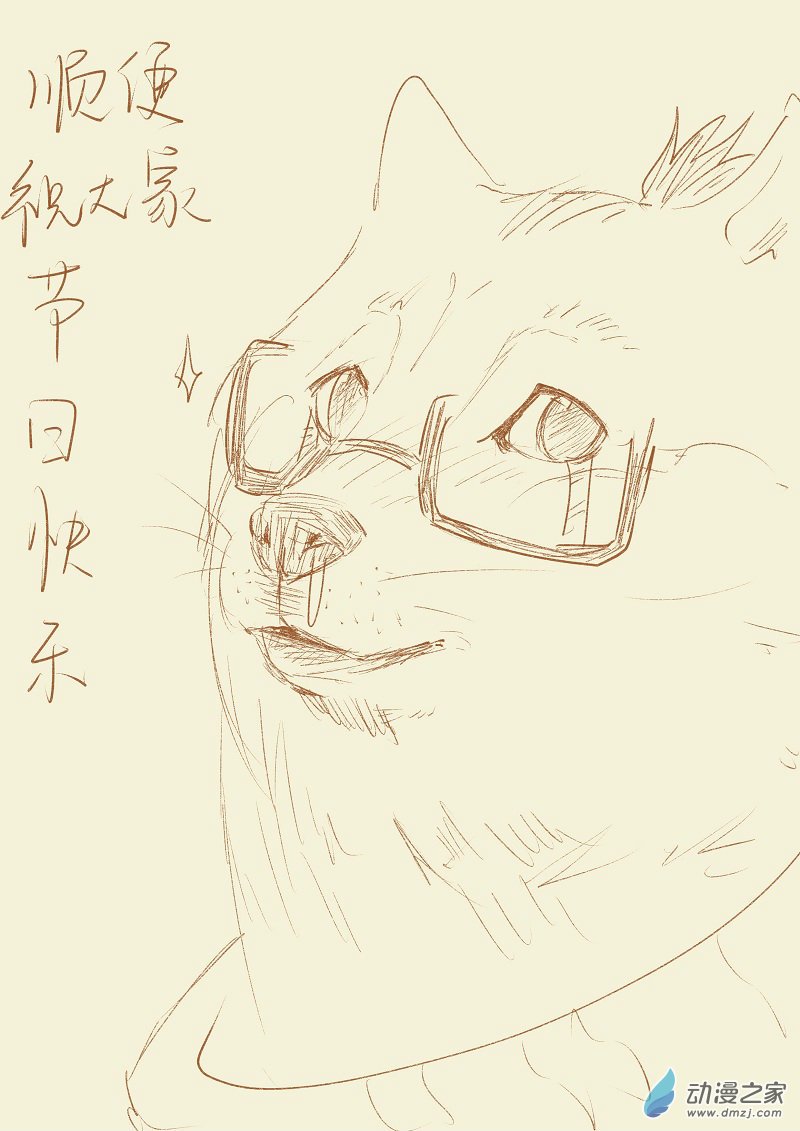 顺便
祝大家
节
日
快
乐
动漫之家
www.dmzj.com